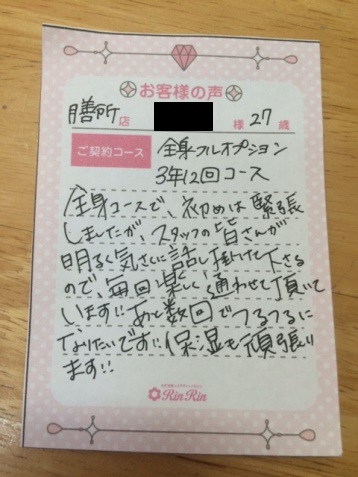 お客様の声
膳所店 様 27歳
ご契約コース 全身フルオプション
3年12回コース
全身コースで、初めは緊張
しましたが、スタッフの皆さんが
明るく気さくに話し掛けて下さる
ので、毎回楽しく通わせて頂いて
います!!あと数回でつるつるに
なりたいです!!保湿も頑張り
ます!!
RinRin